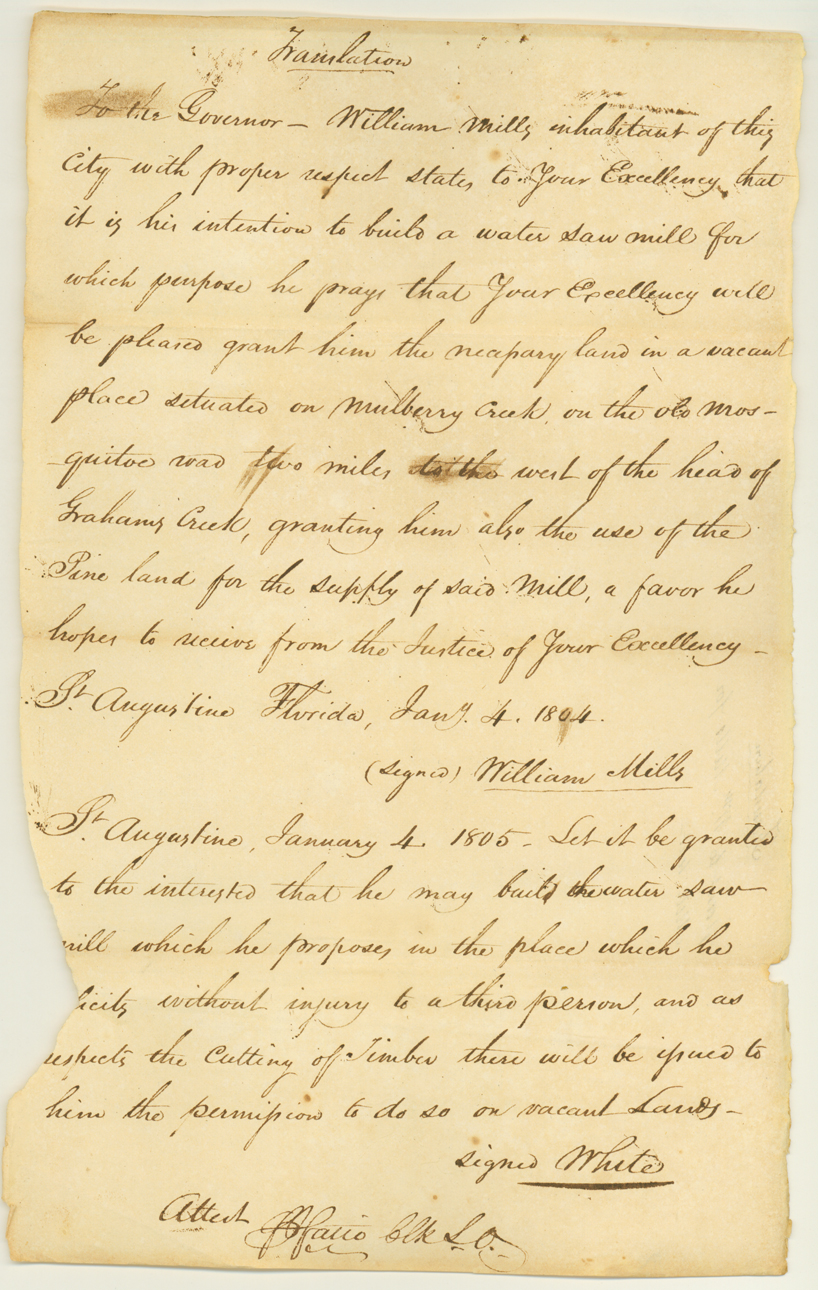 Translation
To the Governor — William Mills inhabitant of this
City with proper respect states to Your Excellency that
it is his intention to build a water saw mill for
which purpose he prays that Your Excellency will
be pleased grant him the necessary land in a vacant
place situated on Mulberry Creek, on the old Mos-
-quitoe road two miles to the west of the head of
Grahams Creek, granting him also the use of the
Pine land for the supply of said Mill, a favor he
hopes to receive from the Justice of Your Excellency —
St. Augustine Florida, Jany. 4. 1804.
(signed) William Mills
St. Augustine, January 4. 1805 — Let it be granted
to the interested that he may build the water saw
mill which he proposes in the place which he
licits without injury to a third person, and as
respects the Cutting of Timber there will be issued to
him the permission to do so on vacant Lands —
signed White
Attest Clk L. O.